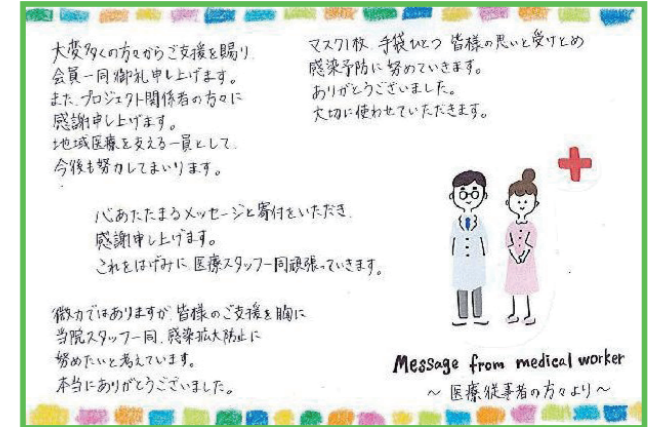 大変多くの方々からご支援を賜り、
会員一同御礼申し上げます。
また、プロジェクト関係者の方々に
感謝申し上げます。
地域医療を支える一員として、
今後も努力してまいります。
マスク1枚、手袋ひとつ 皆様の思いと受けとめ
感染予防に努めていきます。
ありがとうございました。
大切に使わせていただきます。
心あたたまるメッセージと寄付をいただき、
感謝申し上げます。
これをはげみに、医療スタッフ一同頑張っていきます。
微力ではありますが、皆様のご支援を胸に
当院スタッフ一同、感染拡大防止に
努めたいと考えています。
本当にありがとうございました。
Message from medical worker
～ 医療従事者の方々より ～